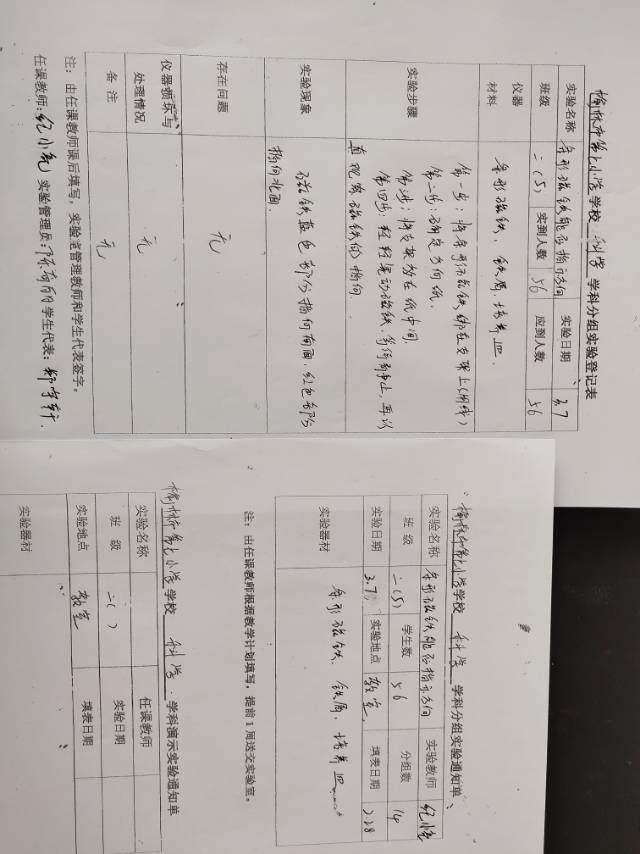 榆林市第七小学学校 科学 学科分组实验登记表
实验名称 条形磁铁能否指示方向 实验日期 3.7
班级 二(5) 实到人数 56 应到人数 56
仪器材料 条形磁铁、铁屑、培养皿.
实验步骤
第一步:将条形磁铁绑在支架上(用线)
第二步:确定方向纸.
第三步:将支架放在纸中间.
第四步:轻轻转动磁铁,等待静止,再认
真观察磁铁的指向.
实验现象
磁铁蓝色部分指向南面,红色部分
指向北面.
存在问题 无
仪器损坏与处理情况 无
备注 无
注:由任课教师课后填写,实验室管理教师和学生代表签字。
任课教师: 实验管理员: 学生代表:
榆林市第七小学学校 科学 学科分组实验通知单
实验名称 条形磁铁能否指示方向 实验教师
班级 二(5) 学生数 56 分组数 14
实验日期 3.7 实验地点 教室 填表日期 2.28
实验器材 条形磁铁、铁屑、培养皿
注:由任课教师根据教学计划填写,提前1周送交实验室。
榆林市第七小学学校 科学 学科演示实验通知单
实验名称 任课教师
班级 二( ) 实验日期
实验地点 教室 填表日期
实验器材